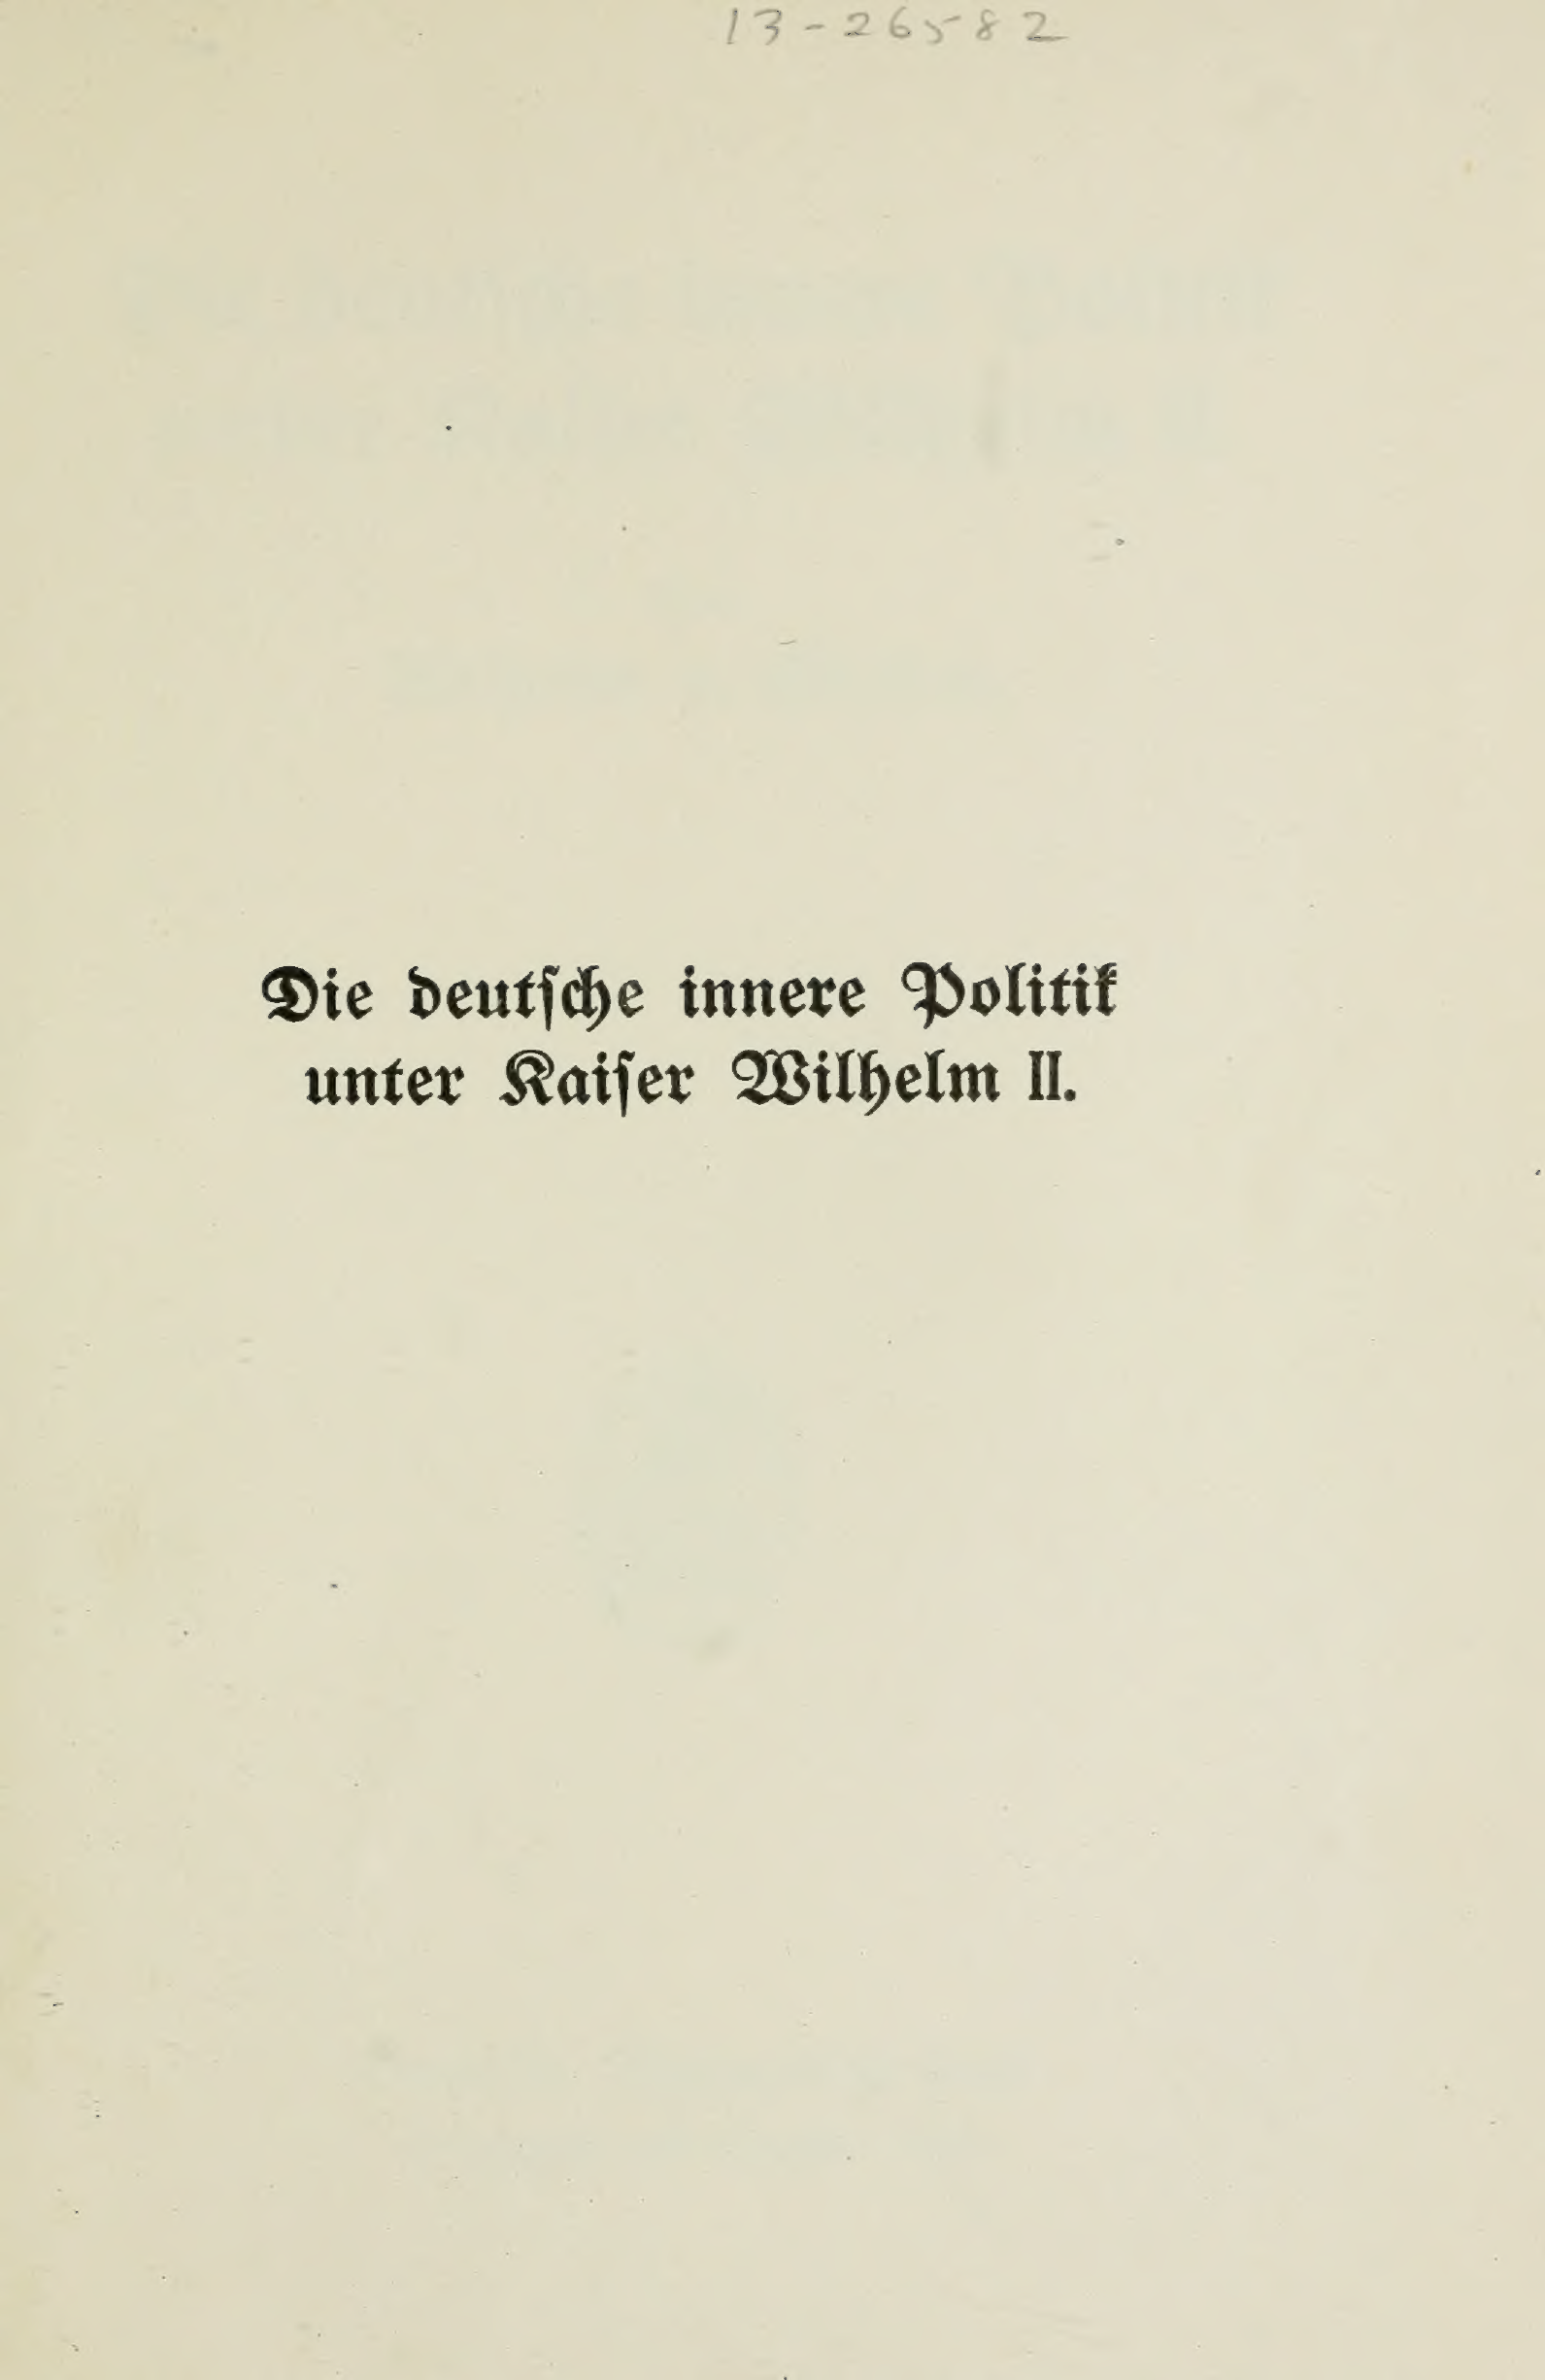 13-26582
Die deutſche innere Politik
unter Kaiſer Wilhelm II.